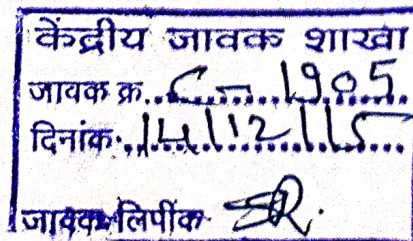 केंद्रीय जावक शाखा
जावक क्र...C-1905
दिनांक...14/12/15
जावक लिपीक